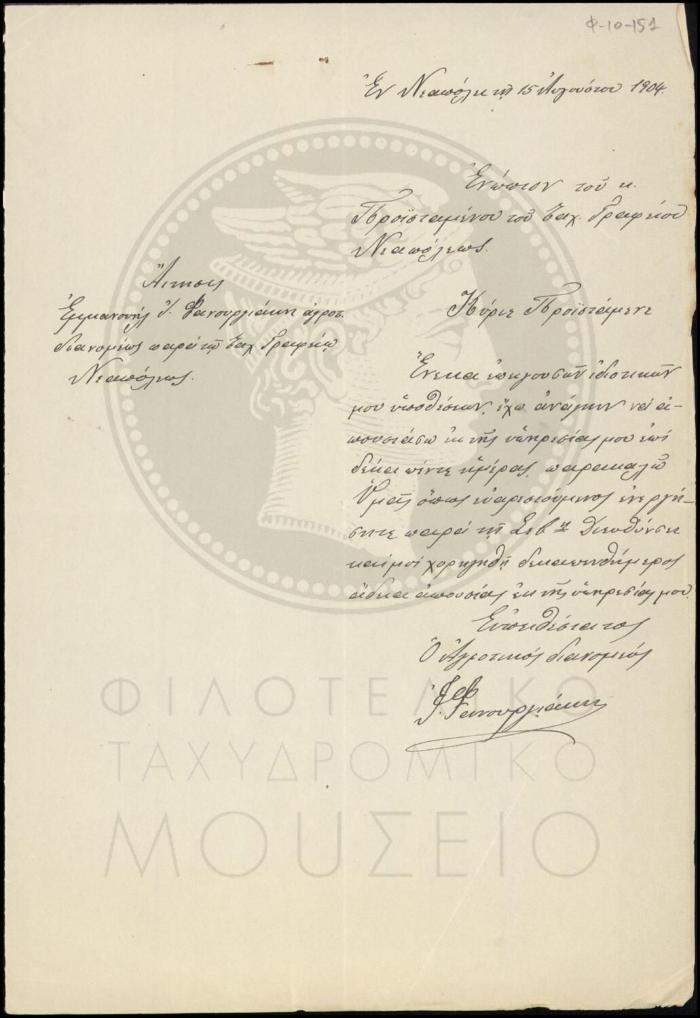 Φ-10-151
Ἐν Νεαπόλει τῇ 15 Αὐγούστου 1904.
Ἐνώπιον τοῦ κ.
Προϊσταμένου τοῦ Ταχ. Γραφείου
Νεαπόλεως.
Αἴτησις
Ἐμμανουὴλ Ἰ. Φανουργιάκη ἀγροτ.
διανομέως παρὰ τῷ Ταχ. Γραφείῳ
Νεαπόλεως.
Κύριε Προϊστάμενε
Ἕνεκα ἐπειγουσῶν ἰδιοτικῶν
μου ὑποθέσεων, ἔχω ἀνάγκην νὰ ἀ-
πουσιάσω ἐκ τῆς ὑπηρεσίας μου ἐπὶ
δέκα πέντε ἡμέρας, παρακαλῶ
Ὑμᾶς ὅπως εὐαρεστούμενος ἐνεργή-
σητε παρὰ τῇ Σεβ. Διευθύνσει
καί μοι χορηγηθῇ δεκαπενθήμερος
ἄδεια ἀπουσίας ἐκ τῆς ὑπηρεσίας μου.
Εὐπειθέστατος
Ὁ Ἀγροτικὸς διανομεὺς
Φανουργιάκης
ΦΙΛΟΤΕΛΙΚΟ
ΤΑΧΥΔΡΟΜΙΚΟ
ΜΟΥΣΕΙΟ